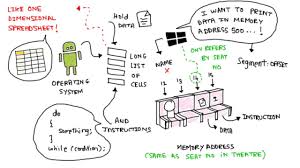 LIKE ONE
DIMENSIONAL
SPREADSHEET!
HOLD
DATA
OPERATING
SYSTEM
LONG
LIST
OF
CELLS
AND
INSTRUCTIONS
do
{
Somethings;
}
while (condition);
I WANT TO PRINT
DATA IN MEMORY
ADDRESS 500...!
NAME
X
ONLY REFERS
BY SEAT
NO
Segment:OFFSET
INSTRUCTION
DATA
MEMORY ADDRESS
(SAME AS SEAT NO IN THEATRE)